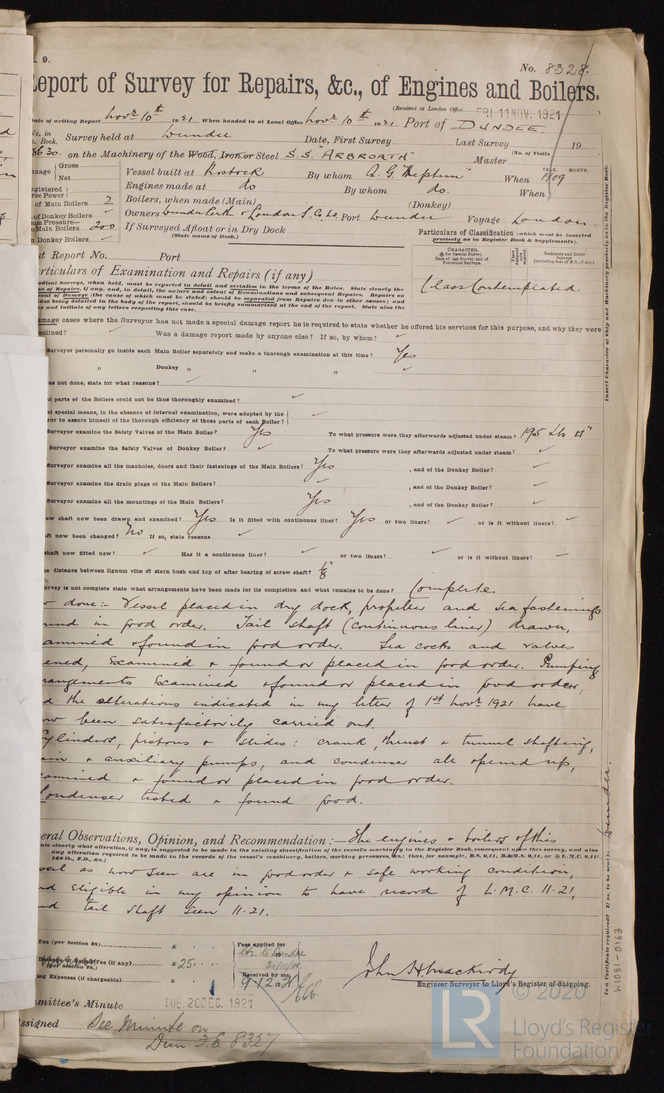 9.
No. 8328.
Report of Survey for Repairs, &c., of Engines and Boilers.
(Received at London Office FRI 11 NOV. 1921
Date of writing Report Novr 10th 1921 When handed in at Local Office Novr 10th 1921 Port of DUNDEE.
No. in Book. Survey held at Dundee Date, First Survey Last Survey 19
(No. of Visits
8630. on the Machinery of the Wood, Iron or Steel S.S. "ARBROATH" Master
Gross
Net
Vessel built at Rostock By whom A.G. "Neptun" When 1909
YEAR. MONTH.
Registered
Horse Power
Engines made at do By whom do. When
No. of Main Boilers 2 Boilers, when made (Main) (Donkey)
No. of Donkey Boilers Owners Dundee Perth & London S. Co Ld Port Dundee Voyage London.
Steam Pressure—
Main Boilers 200 If Surveyed Afloat or in Dry Dock
(State name of Dock.)
Donkey Boilers
Particulars of Classification (which must be inserted
precisely as in Register Book & Supplements).
Last Report No. Port
CHARACTER.
Particulars of Examination and Repairs (if any)
Class Contemplated.
In damage cases where the Surveyor has not made a special damage report he is required to state whether he offered his services for this purpose, and why they were
declined? Was a damage report made by anyone else? If so, by whom?
Surveyor personally go inside each Main Boiler separately and make a thorough examination at this time? Yes
" Donkey " " "
was not done, state for what reasons?
What parts of the Boilers could not be thoroughly examined?
What special means, in the absence of internal examination, were adopted by the
Surveyor to assure himself of the thorough efficiency of those parts of each Boiler?
Surveyor examine the Safety Valves of the Main Boiler? Yes To what pressure were they afterwards adjusted under steam? 195 lbs □"
Surveyor examine the Safety Valves of Donkey Boiler? To what pressure were they afterwards adjusted under steam?
Surveyor examine all the manholes, doors and their fastenings of the Main Boilers? Yes , and of the Donkey Boiler?
Surveyor examine the drain plugs of the Main Boilers? , and of the Donkey Boiler?
Surveyor examine all the mountings of the Main Boilers? Yes , and of the Donkey Boiler?
screw shaft now been drawn and examined? Yes Is it fitted with continuous liner? Yes or two liners? or is it without liners?
shaft now been changed? No If so, state reasons
shaft now fitted new? Has it a continuous liner? or two liners? or is it without liners?
the distance between lignum vitæ of stern bush and top of after bearing of screw shaft? 1/8
Survey is not complete state what arrangements have been made for its completion and what remains to be done? Complete.
done:- Vessel placed in dry dock, propeller and sea fastenings
found in good order. Tail shaft (continuous liner) drawn,
examined & found in good order. Sea cocks and valves
opened, examined & found or placed in good order. Pumping
arrangements examined & found or placed in good order,
and the alterations indicated in my letter of 1st Novr 1921 have
now been satisfactorily carried out.
Cylinders, pistons & slides: crank, thrust & tunnel shafting,
main & auxiliary pumps, and condenser all opened up,
examined & found or placed in good order.
Condenser tested & found good.
General Observations, Opinion, and Recommendation:— The engines & boilers of this
vessel as now seen are in good order & safe working condition,
and eligible in my opinion to have record of L.M.C. 11.21,
and tail shaft seen 11.21.
Fee (per Section 28) £
Fee (if any) £ 25
(per Section 28.)
Travelling Expenses (if chargeable) £
Fees applied for
Received by me,
Engineer Surveyor to Lloyd's Register of Shipping.
Committee's Minute TUE. 20 DEC. 1921
Assigned See Minute on
Dun F.E. 8327
Is a Certificate required? If so, to be sent to Dundee.
W1081-0163
LR © 2020
Lloyd's Register
Foundation